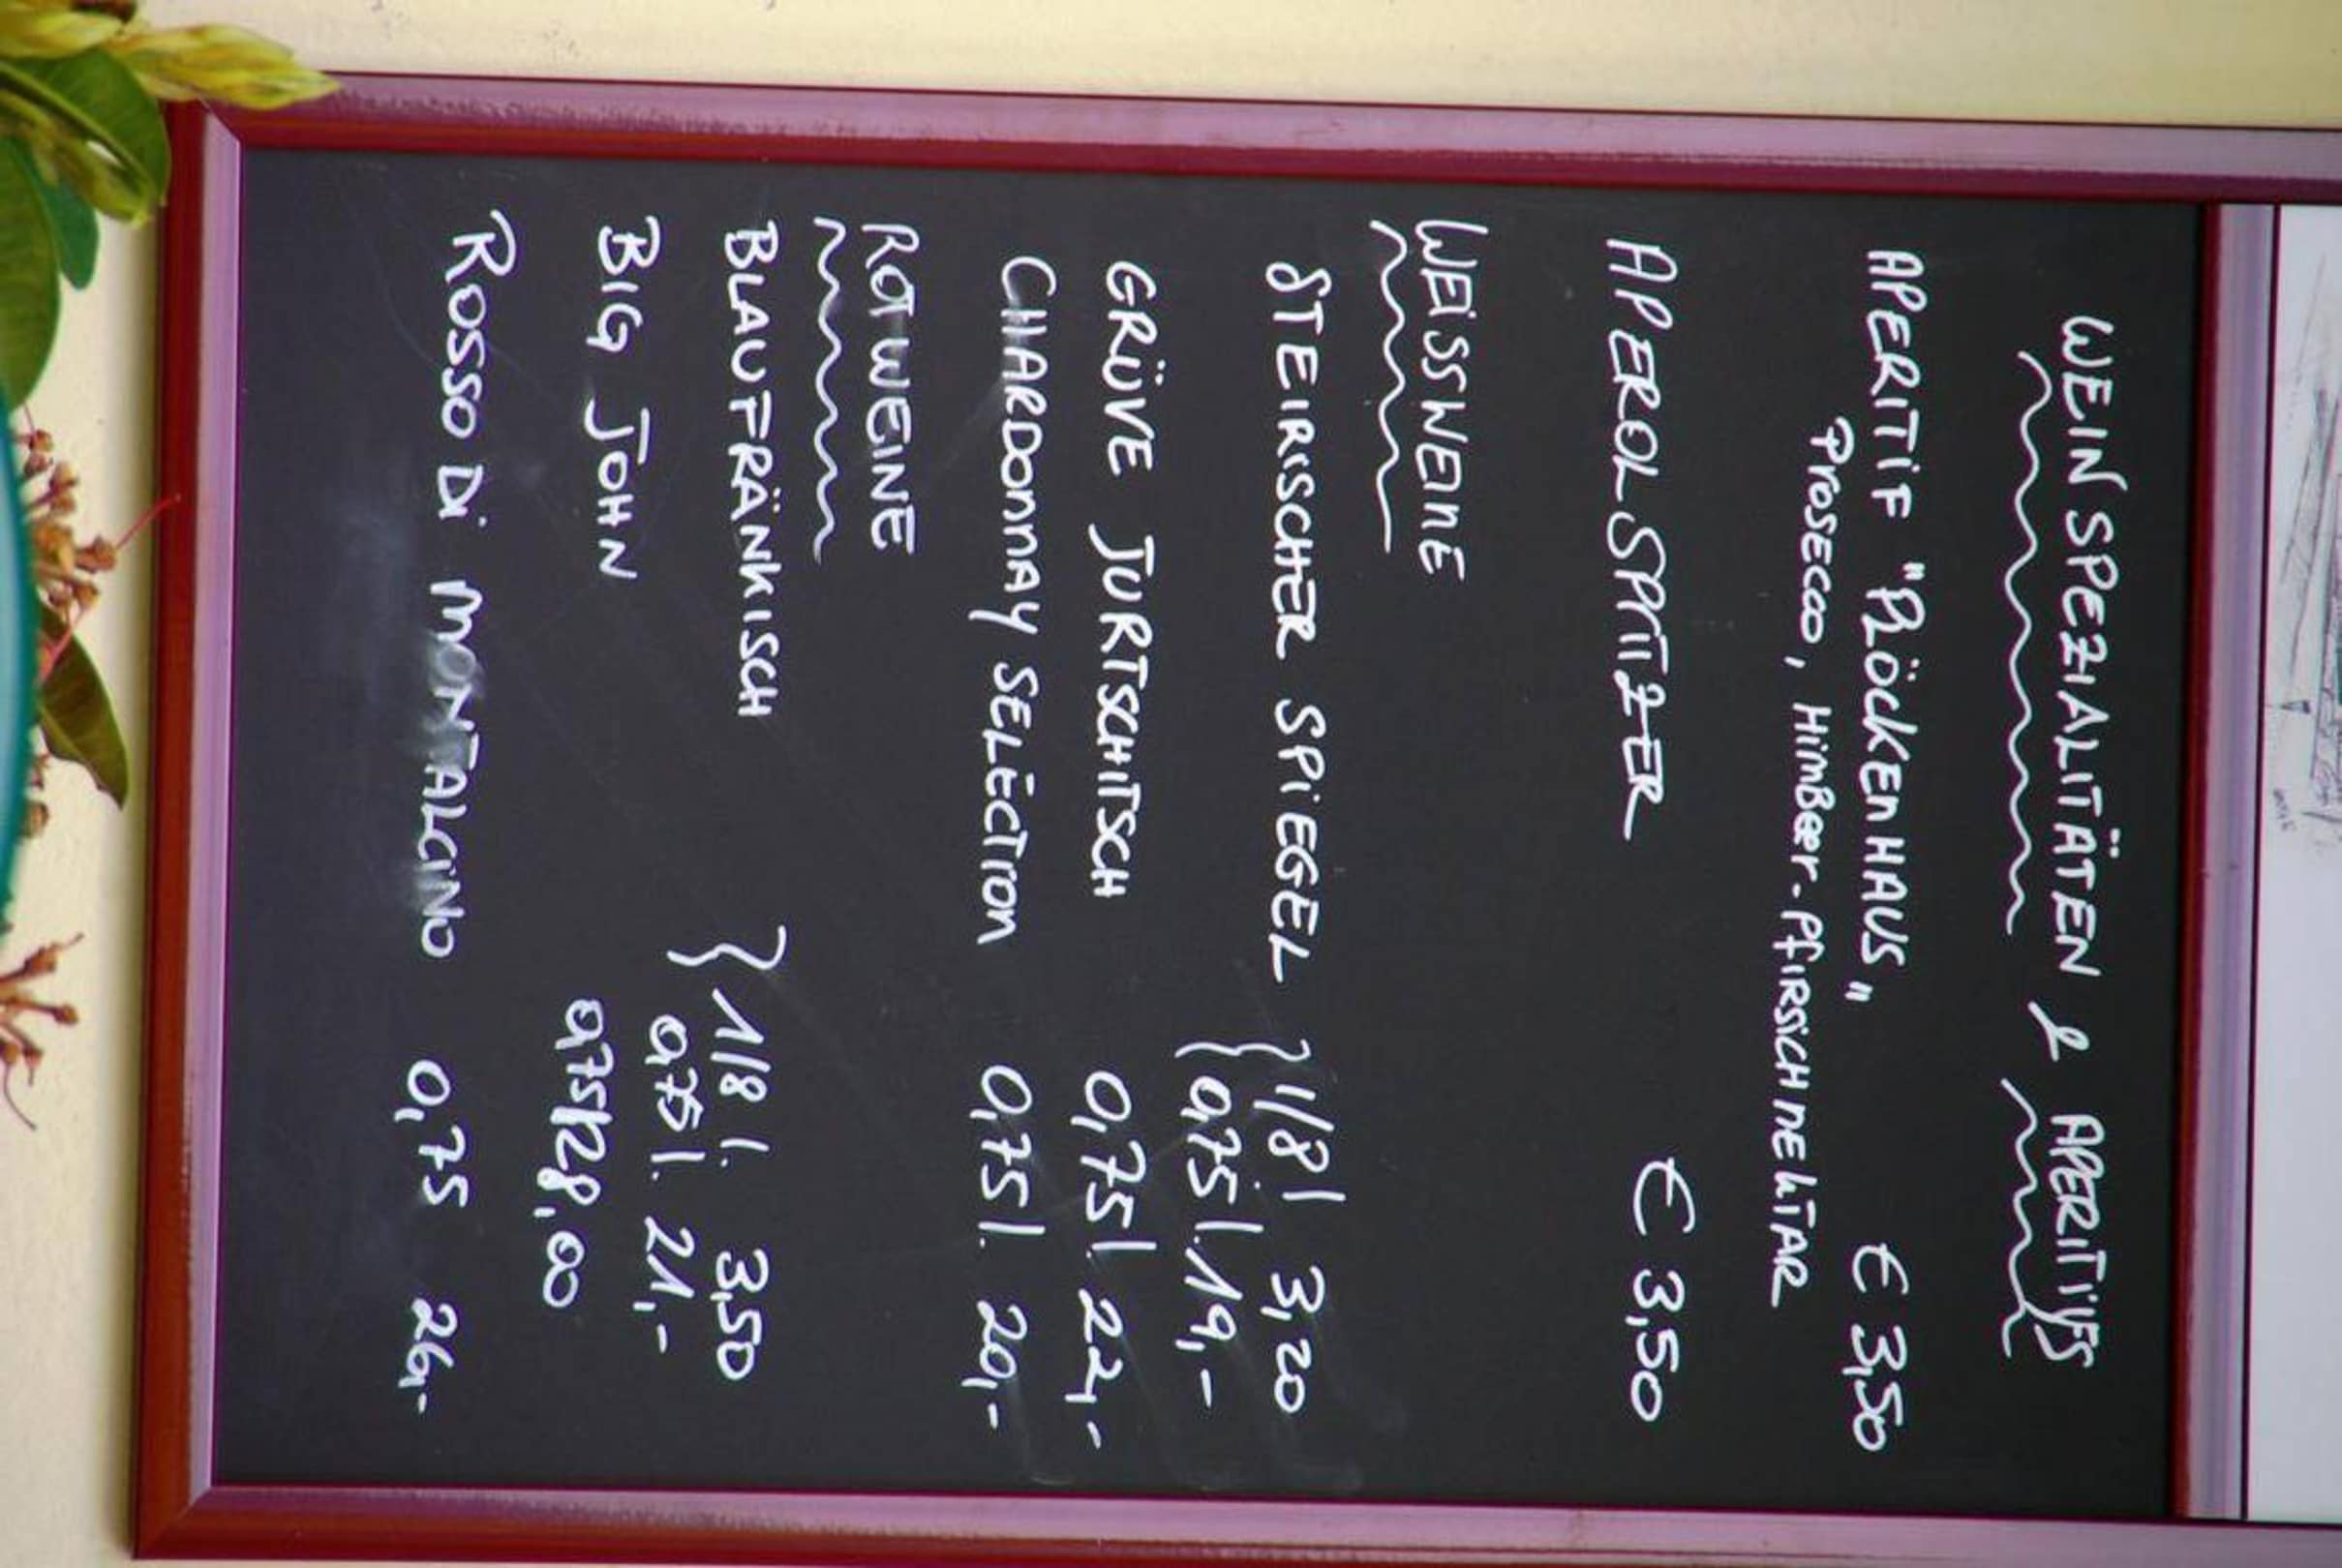 WEINSPEZIALITÄTEN & APERITIFS
APERITIF "PLÖCKENHAUS" € 3,50
PROSECCO, HIMBEER-PFIRSICHNEKTAR
APEROLSPRITZER € 3,50
WEISSWEINE
STEIRISCHER SPIEGEL } 1/8 l 3,20
{ 0,75 l. 19,-
GRÜVE JURTSCHITSCH 0,75 l. 22,-
CHARDONNAY SELECTION 0,75 l. 20,-
ROTWEINE
BLAUFRÄNKISCH } 1/8 l. 3,50
0,75 l. 21,-
BIG JOHN 0,75l 28,00
ROSSO DI MONTALCINO 0,75 26,-